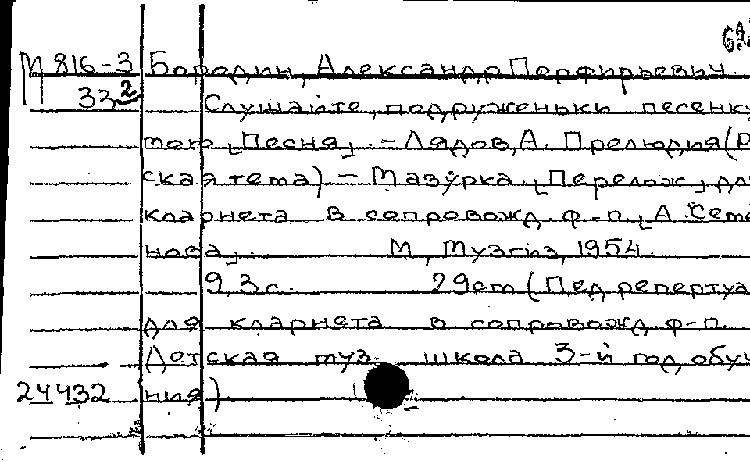 М 816-3 Бородин, Александр Порфирьевич
33 2 Слушайте, подруженьки песенку
мою [Песня]. – Лядов, А. Прелюдия (Р
ская тема) – Мазурка. [Перелож.] дл
кларнета в сопровожд. ф-п. [А. Семё
нова].
М., Музгиз, 1954.
9, 3 с. 29 cm (Пед. репертуа
для кларнета в сопровожд. ф-п.
Детская муз. школа 3-й год обу
24432 ния)